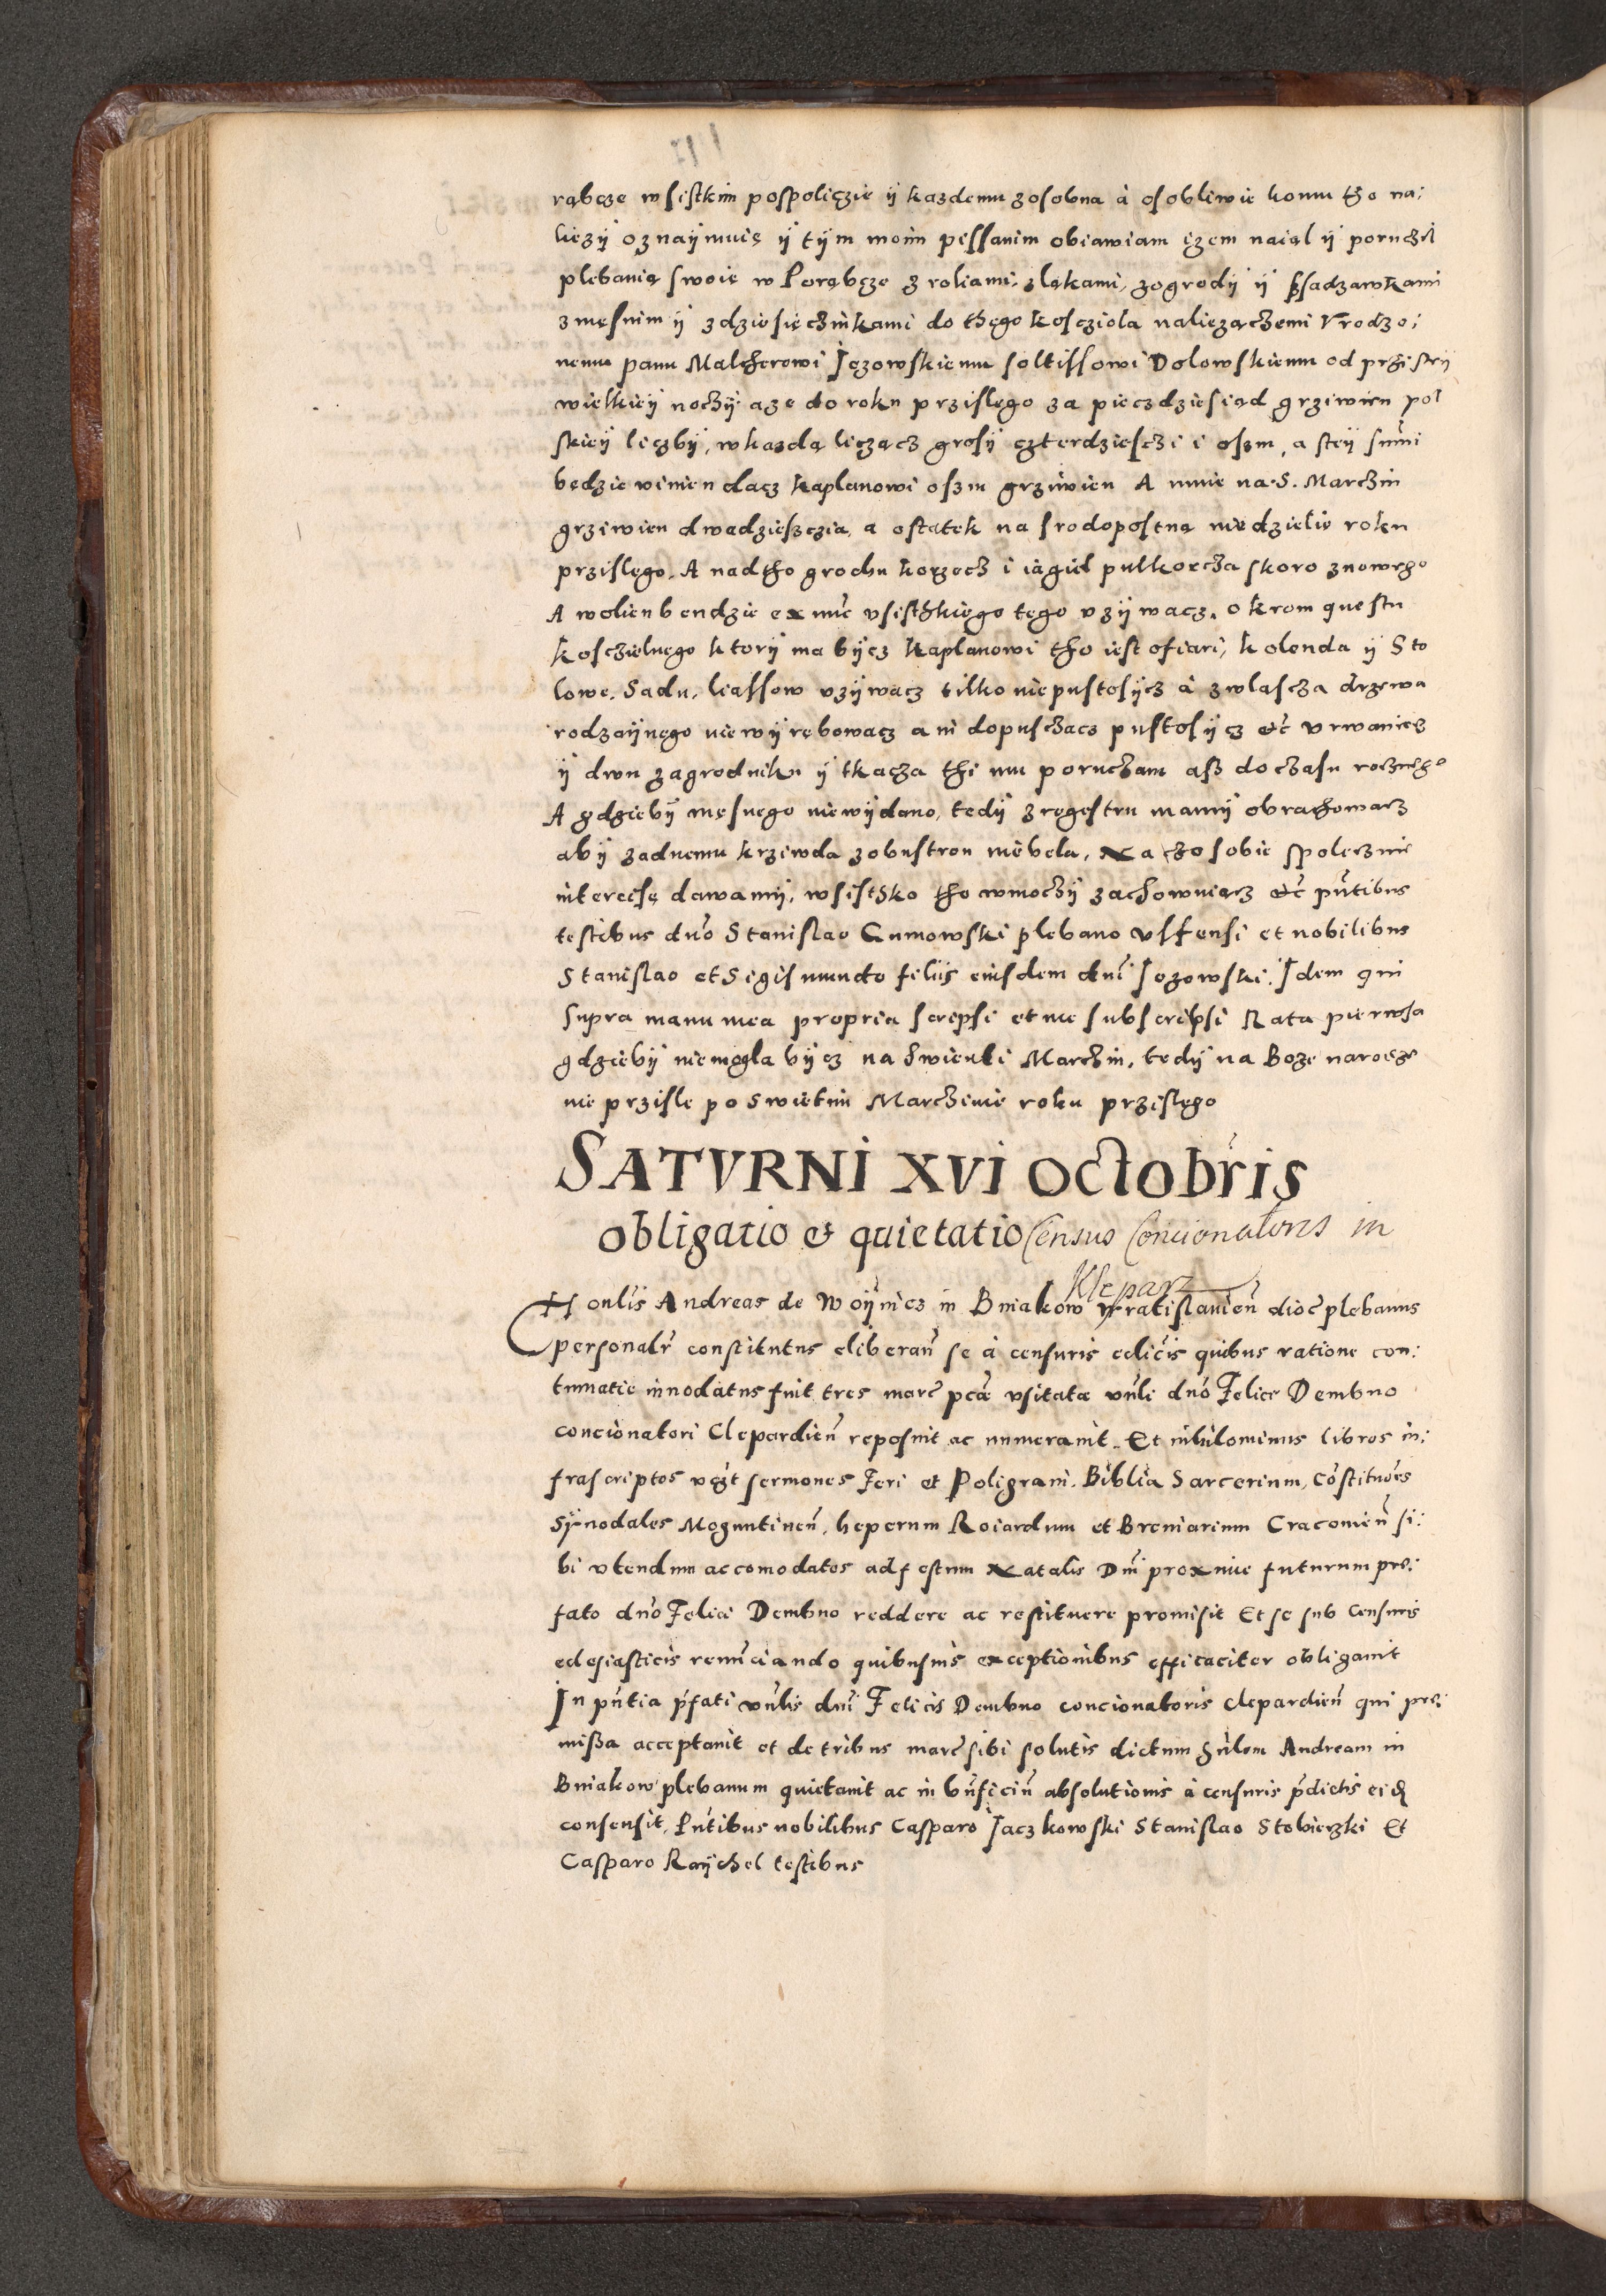 rąbcze wsistkim pospoliczie ÿ kazdemu zosobna à osobliwie komu tho na:
liezÿ oznaÿmuię ÿ tÿm moim pissanim obiawiam izem naiąl ÿ poruczil
plebanią swoię w Porąbcze z roliami, z ląkami, zogrodÿ ÿ ssadzawkami
z męsnim ÿ z dziesięczinkami do thego kosczioła naliezączemi Vrodzo:
nemu panu Malcherowi Jezowskiemu soltissowi Dolowskiemu od przistÿ
wielkieÿ noczÿ aze do roku przislego za pieczdziesiąd grziwien pol
skieÿ liczbÿ, w kazdą licząncz grosÿ czterdziesczi i oszm, a stÿ summi
będzie winien dacz kaplanowi oszm grziwien A mnie na S. Marczin
grziwien dwadziesczia, a ostatek na srodopostną niedzielie roku
przislego. A nadtho grochu korzecz i iagiel pulkorcza skoro znowego
A wolien bendzie ex nuc vsisthkiego tego vzÿwacz, okrom questu
kosczielnego ktorÿ ma bÿcz kaplanowi tho iest ofiari, kolenda ÿ Sto
lowe, Sadu, liassow vzÿwacz tilko niepustosÿcz à zwlascza drzewa
rodzaÿnego niewÿrębowacz ani dopusczacz pustosÿcz etc Vrwanicz
ÿ dwu zagrodniku ÿ tkacza thi mu poruczam asz do czasu rocznego
A gdziebÿ męsnego niewÿdano, tedÿ z regestru mamÿ obrachowacz
abÿ zadnemu krziwda zobustron niebela, Na czo sobie spolecznie
intercisę dawamÿ, wsisthko tho wmoczÿ zachowuiącz etc pntibus
testibus dno Stanislao Gumowski plebano Vssensi et nobilibus
Stanislao et Sigismundo filiis eiusdem dni Jezowski. Idem qui
supra manu mea propria scripsi et me subscripsi Rata pierwsa
gdziebÿ niemogla bÿcz na Swienti Marczin, tedÿ na Boze narodze
nie przisle po Swietim Marczinie roku przislego
SATVRNI XVI OCTobris
obligatio & quietatio Census Concionatoris in
Kleparz
Honlis Andreas de Woÿnicz in Bniakow Wratislauien dioc plebanus
personalr constitutus eliberan se à censuris eclicis quibus ratione con:
tumatie innodatus fuit tres marc pcae vsitatae vnli dno Felici Dembno
concionatori Clepardien reposuit ac numerauit. Et nihilominus libros in:
frascriptos vczt sermones Feri et Poligrani, Biblia Sarcerium, Costitucoes
Sÿnodales Moguntinen, heperum Roiardum et Breuiarium Cracouien si:
bi vtendum accomodatos ad festum Natalis Dni proxime futurum pre:
fato dno Felici Dembno reddere ac restituere promisit Et se sub censuris
eclesiasticis renunciando quibusuis exceptionibus efficaciter obligauit
In pntia pfati vnlis dni Felicis Dembno concionatoris clepardien qui pre:
missa acceptauit et de tribus marc sibi solutis dictum hnlem Andream in
Bniakow plebanum quietauit ac in bnficium absolutionis à censuris pdictis eid
consensit. Pntibus nobilibus Casparo Jaczkowski Stanislao Stobierzki Et
Casparo Raÿchel testibus